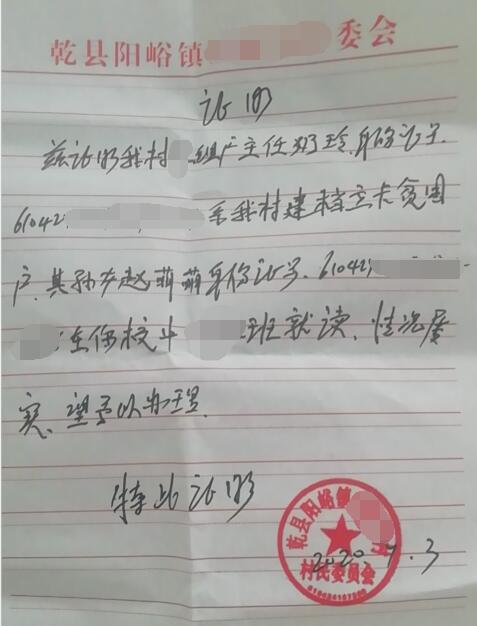 乾县阳峪镇 委会
证明
兹证明我村 组户主任巧玲,身份证号
61042 系我村建档立卡贫困
户、其孙女赵萌萌身份证号、61042
在你校 班就读、情况属
实、望予以办理.
特此证明
乾县阳峪镇
村民委员会
2020.9.3